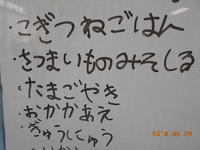 ・こぎつねごはん
・さつまいものみそしる
・たまごやき
・おかかあえ
・ぎゅうにゅう